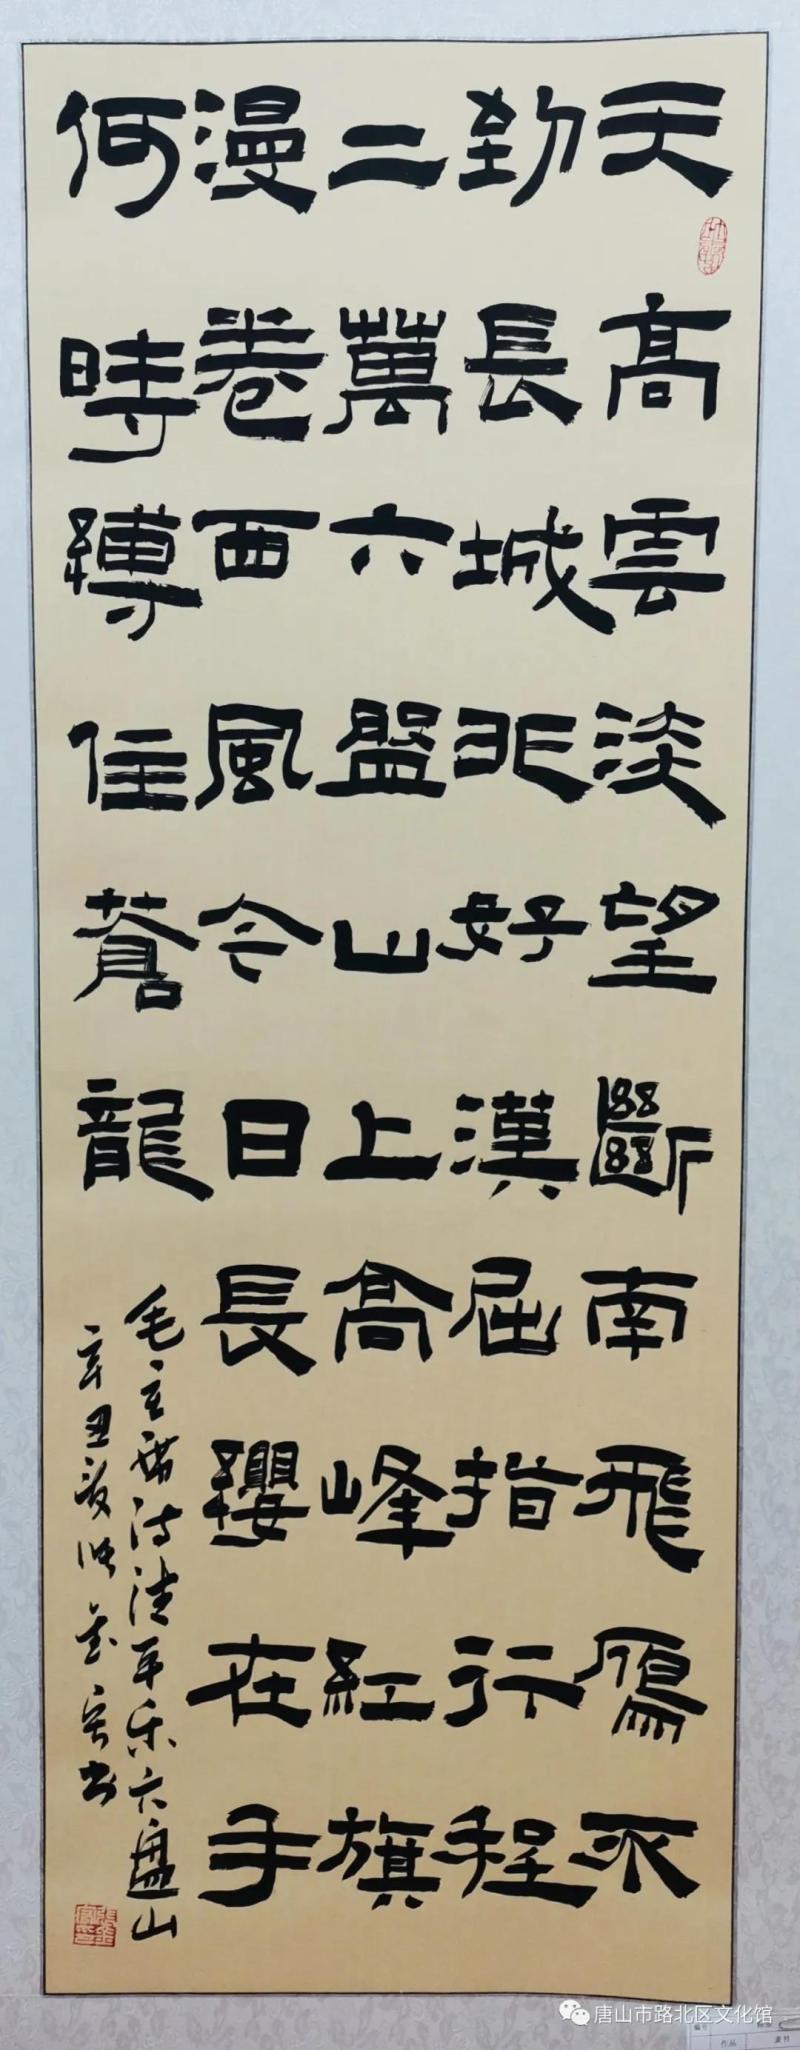 天高雲淡望斷南飛鴈不
到長城非好漢屈指行程
二萬六盤山上高峰紅旗
漫卷西風今日長纓在手
何時縛住蒼龍
毛主席诗清平乐六盘山
辛丑
书
唐山市路北区文化馆
作品